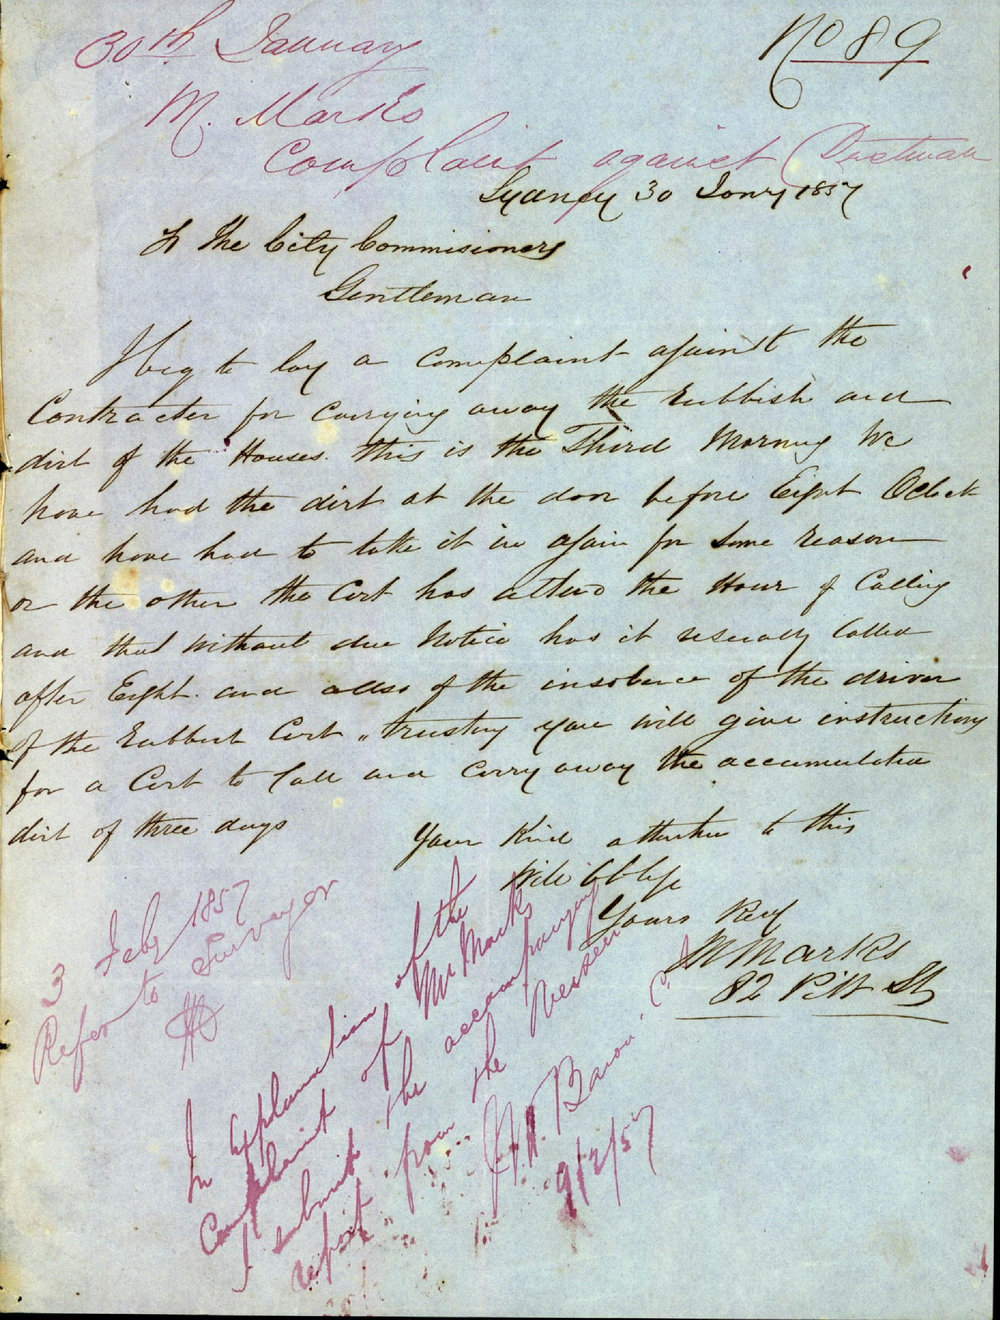 30th January
No 89
M. Marks
Complaint against Dustman
Sydney 30 Jany 1857
To The City Commisioners
Gentleman
I beg to lay a complaint against the
Contracter for carrying away the Rubbish and
dirt of the Houses. this is the Third Morning We
have had the dirt at the door before Eight Oclock
and have had to take it in again for some reason
or the other the Cart has alterd the Hour of Calling
and that without due Notice has it usually Called
after Eight. and allso of the insolence of the driver
of the Rubbish Cart,, trusting you will give instructions
for a Cart to Call and Carry away the accumulated
dirt of three days
Your Kind attention to this
Will Oblige
Yours Resy
M Marks
82 Pitt St
3 Feby 1857
Refer to Surveyor
In explanation of the
complaint of Mr Marks
I submit the accompanying
report from the
Baron C.S
9/2/57